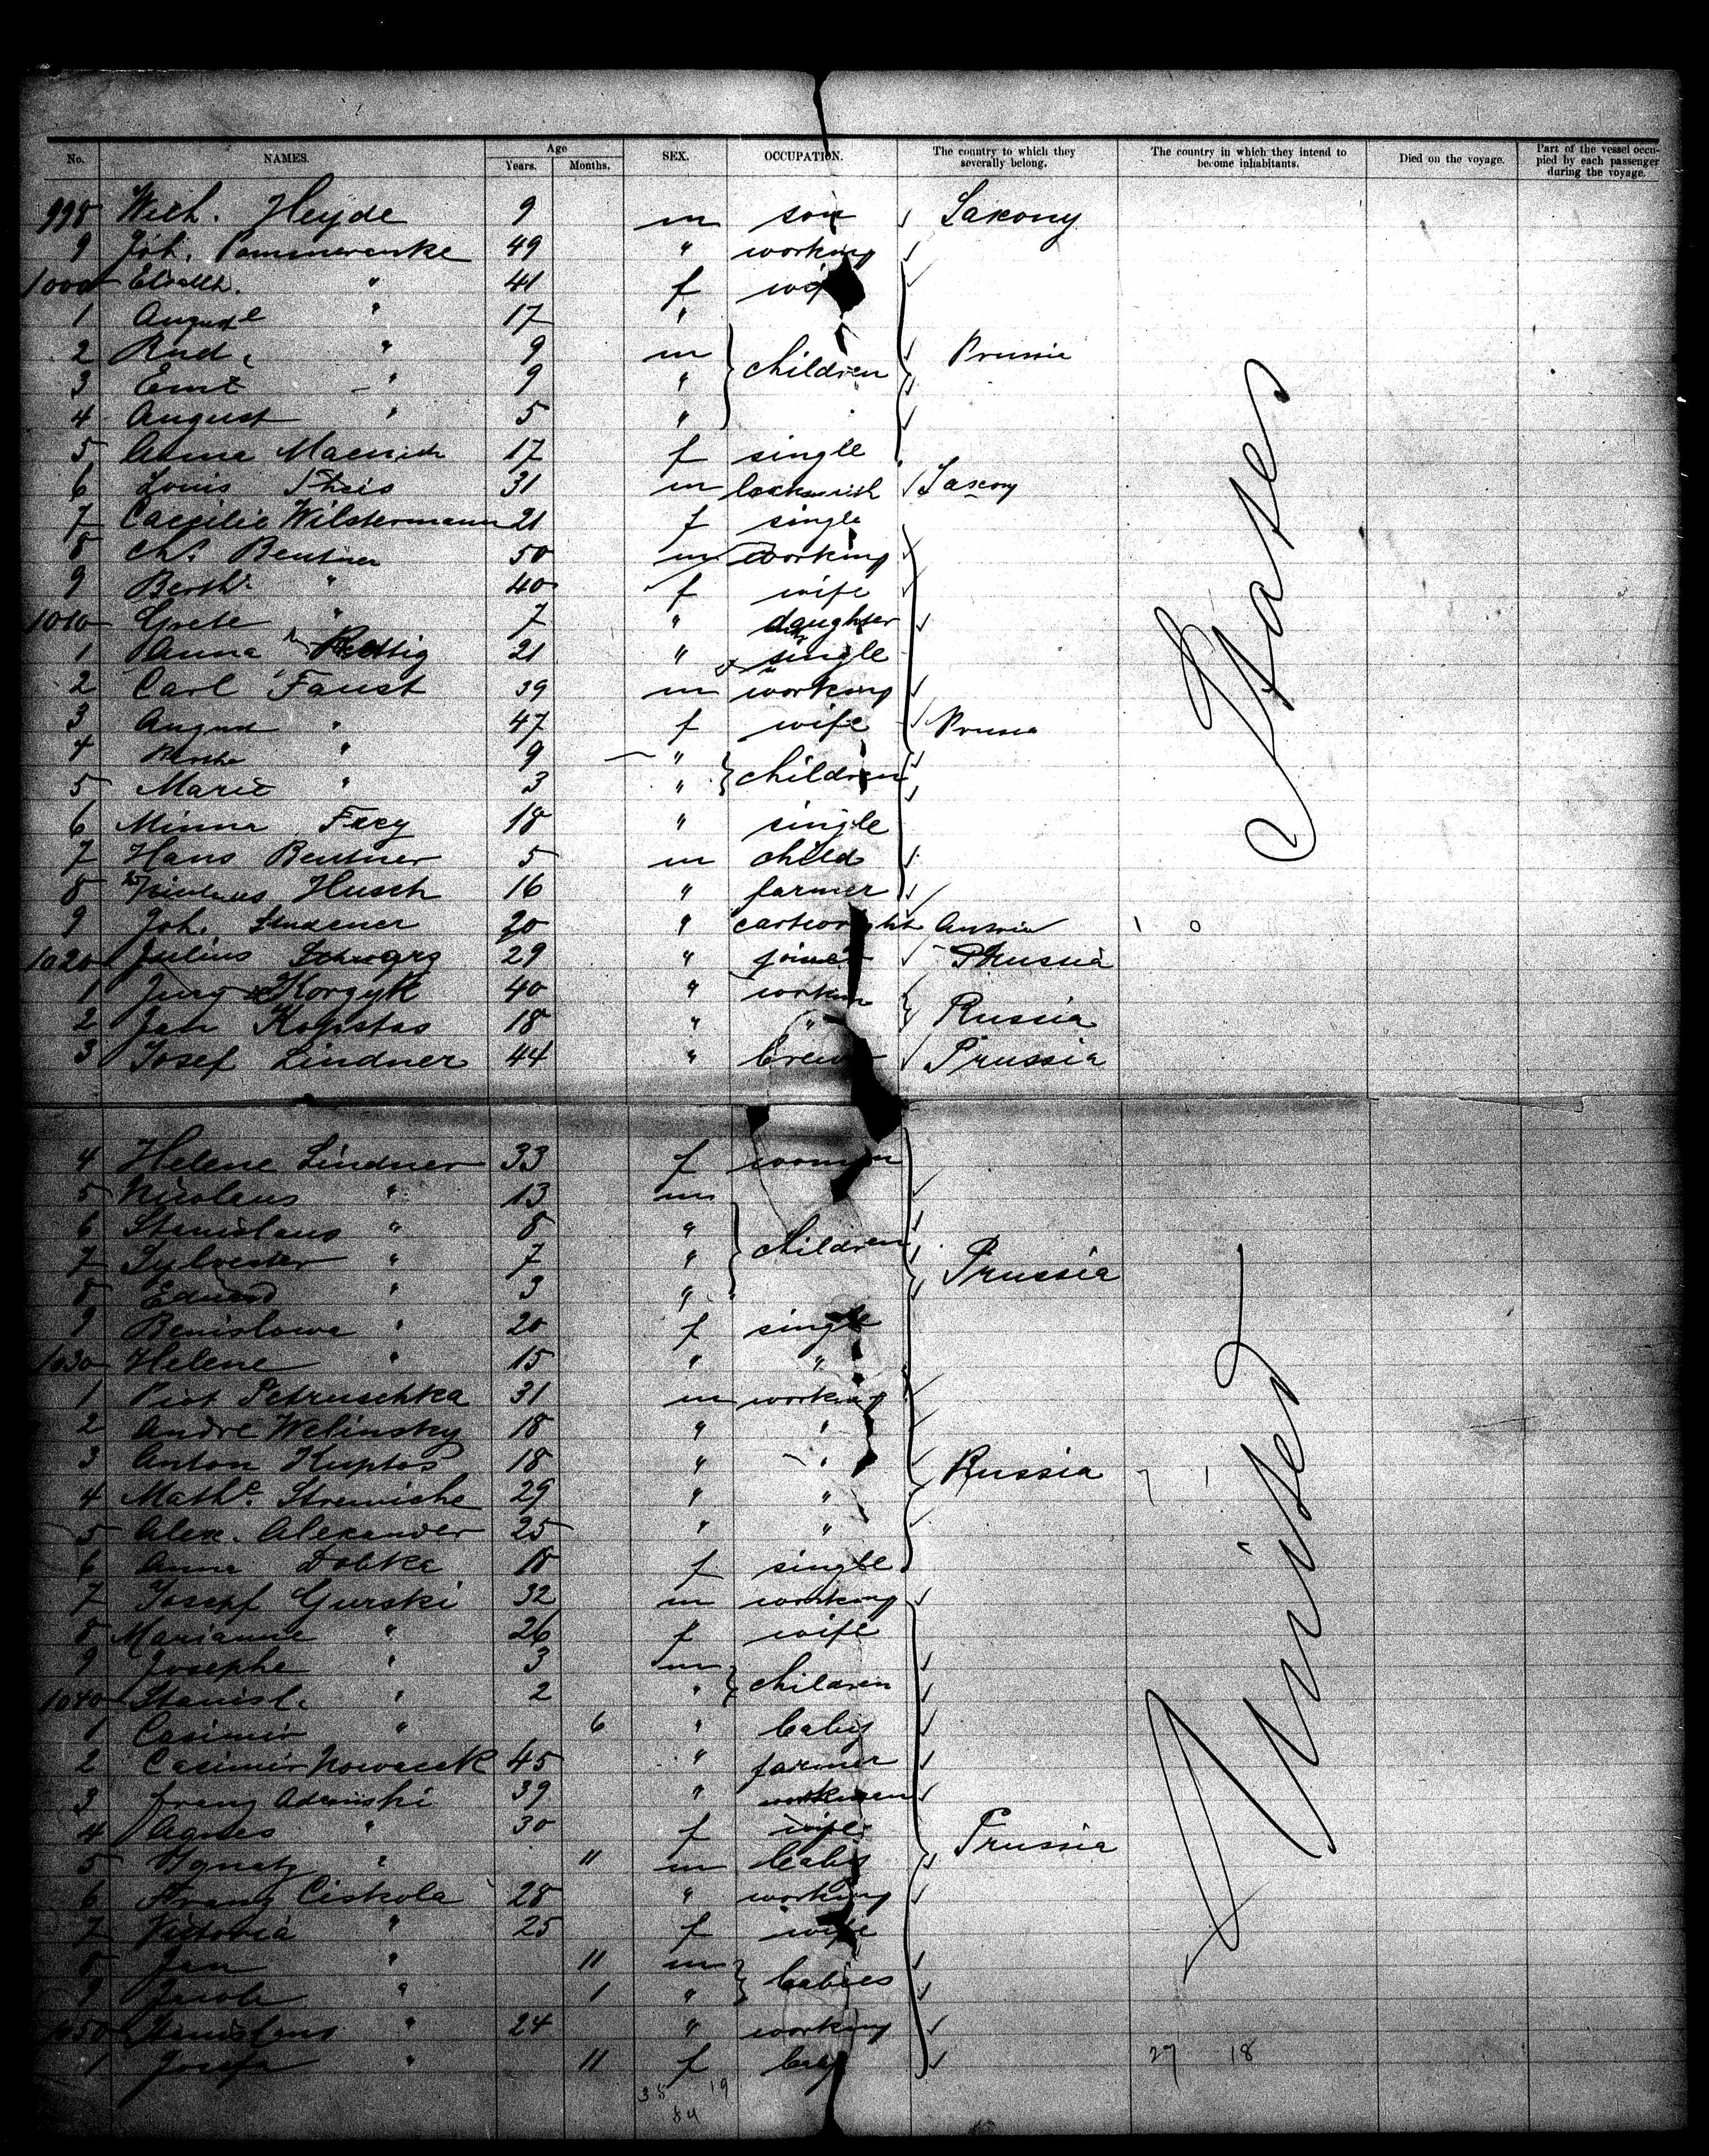 No. NAMES. Age Years. Months. SEX. OCCUPATION. The country to which they severally belong. The country in which they intend to become inhabitants. Died on the voyage. Part of the vessel occupied by each passenger during the voyage.
998 Wilh. Heyde 9 m son Saxony
9 Joh. Pommerenke 49 " working
1000 " 41 f wife
1 August " 17 "
2 Rud. " 9 m children Prussia
3 Emil " 9 "
4 August " 5 "
5 Anna 17 f single
6 Louis Theis 31 m locksmith Saxony
7 Caecilie Wilstermann 21 f single
8 Chr. Beutner 50 m working
9 Berth. " 40 f wife
1010 Grete " 7 " daughter
1 Anna Rettig 21 " single
2 Carl Faust 39 m working
3 August " 47 f wife Prussia
4 Bertha " 9 " children
5 Marie " 3 "
6 Minna Frey 18 " single
7 Hans Beutner 5 m child
8 Nicolaus Husch 16 " farmer
9 Joh. 20 " cartwright Austria 1 0
1020 Julius 29 " joiner Prussia
1 Jurg Korgyk 40 " workin
2 Jan Kopstas 18 " " Russia
3 Josef Lindner 44 " Prussia
4 Helene Lindner 33 f woman
5 Nicolaus " 13 m
6 Stanislaus " 8 " children
7 Sylvester " 7 " Prussia
8 Eduard " 3 "
9 Bronislawa " 20 f single
1030 Helene " 15 " "
1 Piot Petruschka 31 m working
2 Andre Welinsky 18 " "
3 Anton Kuptos 18 " " Russia 7 1
4 Math. 29 " "
5 Alex. Alexander 25 " "
6 Anna Dobka 18 f single
7 Josepf Gurski 32 m working
8 Marianne " 26 f wife
9 Josephe " 3 m children
1040 Stanisl. " 2 "
1 Casimir " 6 " baby
2 Casimir Nowacek 45 " farmer
3 Franz Adamski 39 " workmen
4 Agnes " 30 f wife Prussia
5 Ignatz " 11 m baby
6 Franz Ciskola 28 " working
7 Victoria " 25 f wife
8 Jan " 11 m babies
9 Jacob " 1 "
1050 Stanislaus " 24 " working
1 Josefa " 11 f baby 27 18
35 19
54
United States